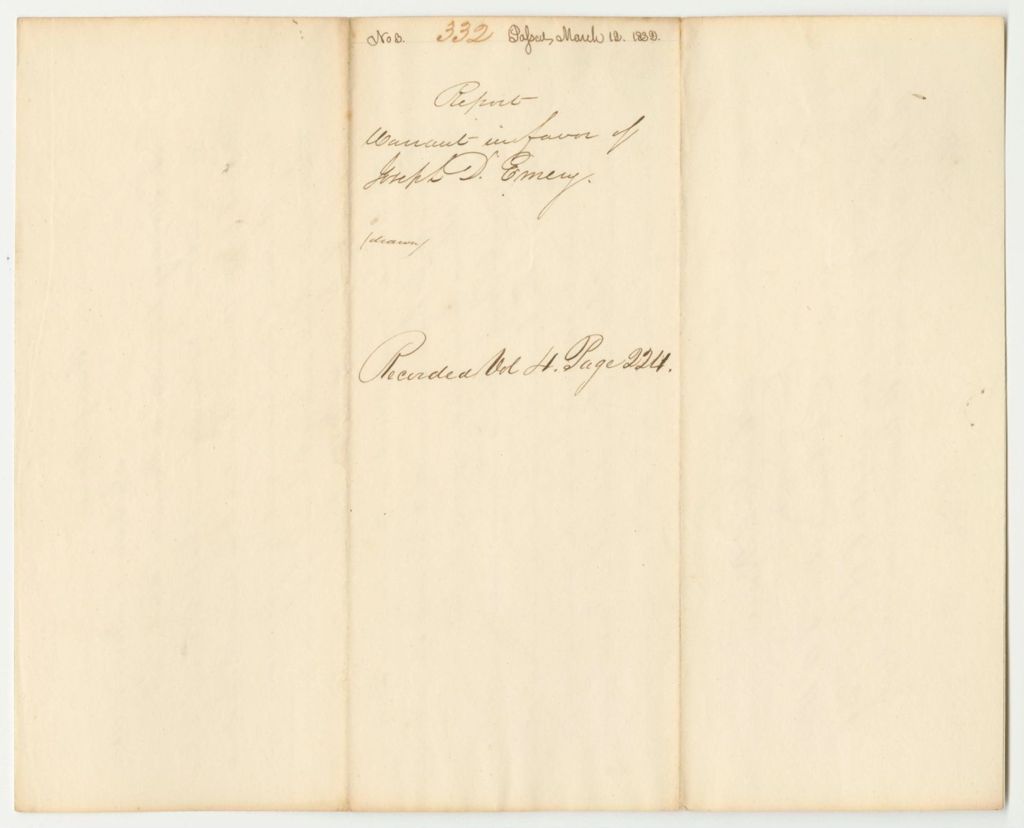 No 3. 332 Passed, March 12. 1832.
Report
Warrant in favor of
Joseph D. Emery.
(drawn)
Recorded Vol 4. Page 224.